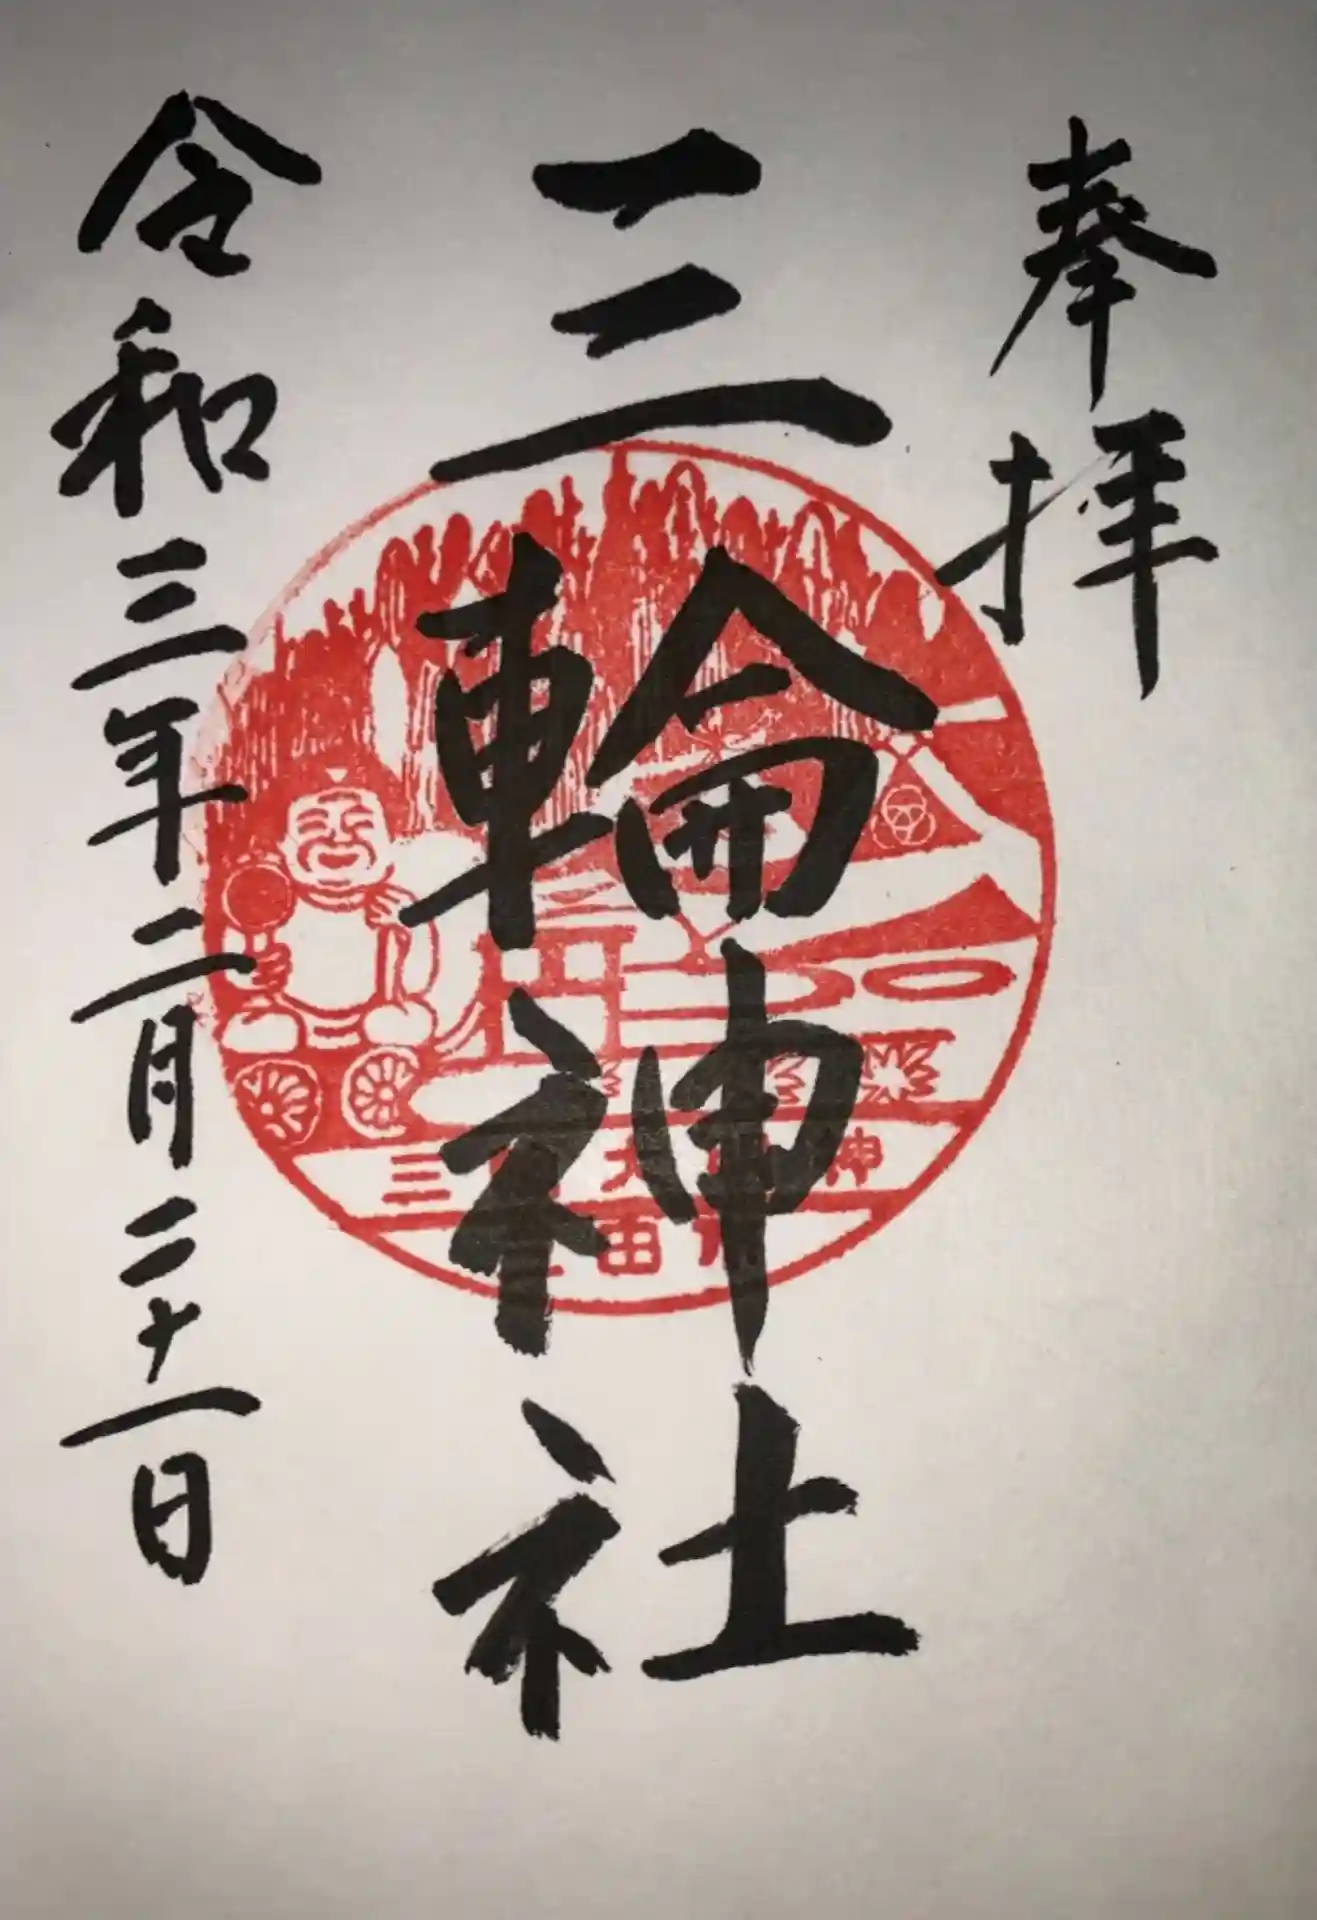 奉拝
三輪神社
令和三年二月二十一日
三 大 神
三田市